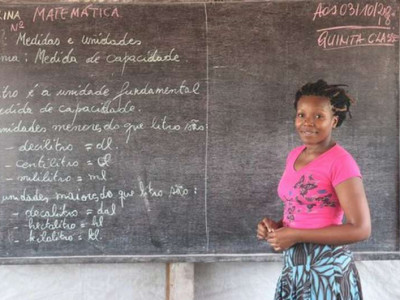 LINA MATEMÁTICA
Nº
Medidas e unidades
ma: Medida de capacidade
tro é a unidade fundamental
edida de capacidade.
unidades menores do que litro são:
- decilitro = dl.
- centilitro = cl
- mililitro = ml
unidades maiores do que litro são:
- decalitro = dal
- hectolitro = hl
- kilolitro = kl.
Aos 03/10/20
18
QUINTA CLASSE